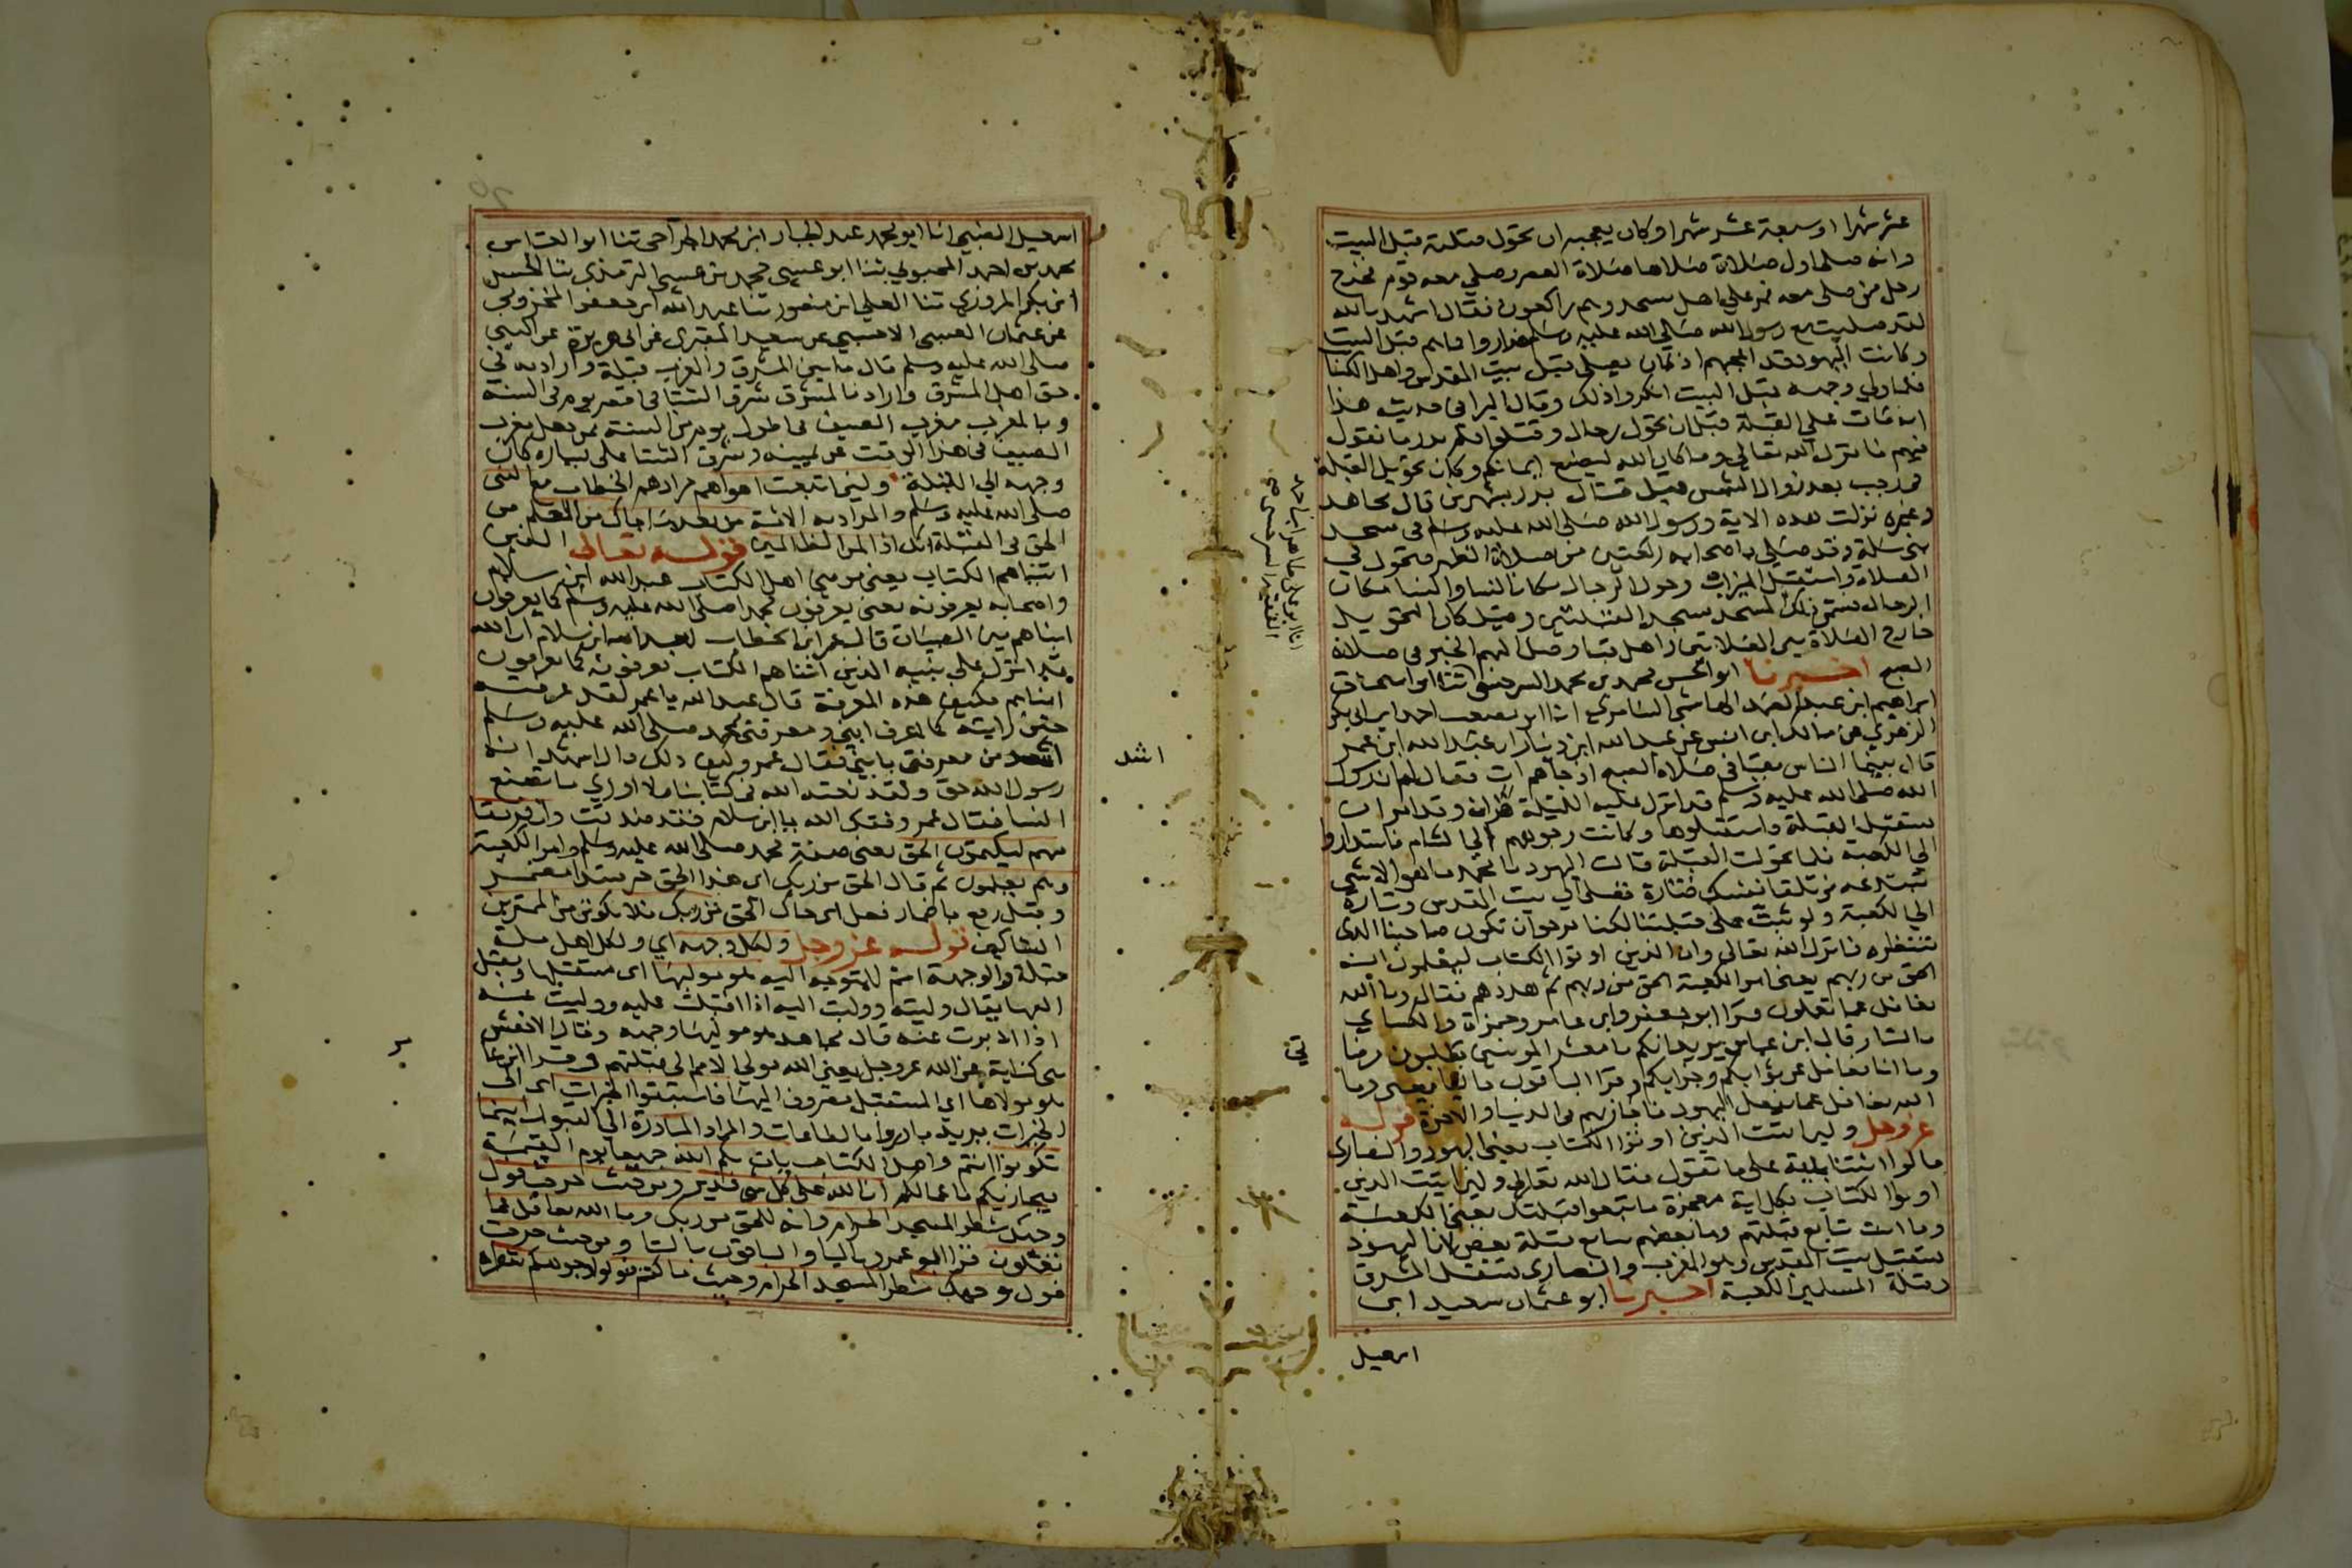 عشر شهرا او سبعة عشر شهرا وكان يعجبه ان تحول قبلته قبل البيت
وانه صلى اول صلاة صلاها صلاة العصر وصلى معه قوم فخرج
رجل ممن صلى معه فمر على اهل مسجد وهم راكعون فقال اشهد بالله
لقد صليت مع رسول الله صلى الله عليه وسلم فداروا كما هم قبل البيت
وكانت اليهود قد اعجبهم اذ كان يصلي قبل بيت المقدس واهل الكتاب
فلما ولى وجهه قبل البيت انكروا ذلك وقال البرا في حديثه هذا
انه مات على القبلة قبل ان تحول رجال وقتلوا فلم ندر ما نقول
فيهم فانزل الله تعالى وما كان الله ليضيع ايمانكم وكان تحويل القبلة
في رجب بعد زوال الشمس قبل قتال بدر بشهرين قال مجاهد
وغيره نزلت هذه الاية ورسول الله صلى الله عليه وسلم في مسجد
بني سلمة وقد صلى باصحابه ركعتين من صلاة الظهر فتحول في
الصلاة واستقبل الميزاب وحول الرجال مكان النسا والنسا مكان
الرجال فسمي ذلك المسجد مسجد القبلتين وقيل كان التحويل
خارج الصلاة بين الصلاتين واهل قبا وصل اليهم الخبر في صلاة
الصبح اخبرنا ابو الحسن محمد بن محمد السرخسي ثنا ابو اسحاق
ابراهيم ابن عبد الصمد الهاشمي السامري انا ابو مصعب احمد ابن ابي بكر
الزهري عن مالك ابن انس عن عبد الله ابن دينار ان عبد الله ابن عمر
قال بينما الناس بقبا في صلاة الصبح اذ جاهم ات فقال لهم ان رسول
الله صلى الله عليه وسلم قد انزل عليه الليلة قران وقد امر ان
يستقبل القبلة فاستقبلوها وكانت وجوههم الى الشام فاستداروا
الى الكعبة فلما تحولت القبلة قالت اليهود يا محمد ما هو الا شي
تبتدعه من تلقا نفسك فتارة تصلي الى بيت المقدس وتارة
الى الكعبة ولو ثبت على قبلتنا لكنا نرجو ان تكون صاحبنا الذي
ننتظره فانزل الله تعالى وان الذين اوتوا الكتاب ليعلمون انه
الحق من ربهم يعني امر الكعبة الحق من ربهم ثم هددهم فقال وما الله
بغافل عما تعملون قرا ابو جعفر وابن عامر وحمزة والكساي
بالتا قال ابن عباس يريد انكم يا معشر المومنين تطلبون مرضا
تي
وما انا بغافل عن ثوابكم وجزايكم وقرا الباقون باليا يعني وما
الله بغافل عما يفعل اليهود فاجازيهم في الدنيا والاخرة قوله
عز وجل ولين اتيت الذين اوتوا الكتاب يعني اليهود والنصارى
قالوا ائتنا باية على ما تقول فقال الله تعالى ولين اتيت الذين
اوتوا الكتاب بكل اية معجزة ما تبعوا قبلتك يعني الكعبة
وما انت بتابع قبلتهم وما بعضهم بتابع قبلة بعض لان اليهود
تستقبل بيت المقدس وهو المغرب والنصارى تستقبل المشرق
وقبلة المسلمين الكعبة اخبرنا ابو عثمان سعيد ابن
اسمعيل
انا ابو علي زاهر ابن احمد
الفقيه السرخسي صح
اسمعيل الضبي انا ابو محمد عبد الجبار ابن محمد الجراحي ثنا ابو العباس
محمد بن احمد المحبوبي ثنا ابو عيسى محمد بن عيسى الترمذي ثنا الحسن
ابن بكر المروزي ثنا المعلى ابن منصور ثنا عبد الله ابن جعفر المخزومي
عن عثمان الاخنسي عن سعيد المقبري عن ابي هريرة عن النبي
صلى الله عليه وسلم قال ما بين المشرق والمغرب قبلة واراد به في
حق اهل المشرق واراد بالمشرق مشرق الشتا في اقصر يوم في السنة
وبالمغرب مغرب الصيف في اطول يوم من السنة فمن جعل مغرب
الصيف في هذا الوقت عن يمينه ومشرق الشتا على يساره كان
وجهه الى القبلة ولين اتبعت اهواهم مرادهم الخطاب مع النبي
صلى الله عليه وسلم والمراد به الامة من بعد ما جاك من العلم من
الحق في القبلة انك اذا لمن الظالمين قوله تعالى الذين
اتيناهم الكتاب يعني مومني اهل الكتاب عبد الله ابن سلام
واصحابه يعرفونه يعني يعرفون محمدا صلى الله عليه وسلم كما يعرفون
ابناهم بين الصبيان قال عمر ابن الخطاب لعبد الله ابن سلام ان الله
قد انزل على نبيه الذين اتيناهم الكتاب يعرفونه كما يعرفون
ابناهم فكيف هذه المعرفة قال عبد الله يا عمر لقد عرفته
حين رايته كما اعرف ابني ومعرفتي بمحمد صلى الله عليه وسلم
اشد من معرفتي بابني فقال عمر وكيف ذلك قال اشهد انه
اشد
رسول الله حق ولقد نعته الله في كتابنا ولا ادري ما تصنع
النسا فقال عمر وفقك الله يا ابن سلام فقد صدقت وان فريقا
منهم ليكتمون الحق يعني صفة محمد صلى الله عليه وسلم وامر الكعبة
وهم يعلمون ثم قال الحق من ربك اي هذا الحق خبر مبتدا مضمر
وقيل رفع باضمار فعل اي جاك الحق من ربك فلا تكونن من الممترين
الشاكين قوله عز وجل ولكل وجهة اي ولكل اهل ملة
قبلة والوجهة اسم للمتوجه اليه هو موليها اي مستقبلها ومقبل
اليها يقال وليته ووليت اليه اذا اقبلت عليه ووليت عنه
اذا ادبرت عنه قال مجاهد هو موليها وجهه وقال الاخفش
هي كناية عن الله عز وجل يعني الله مولي الامم الى قبلتهم وقرا ابن عا
مر
هو مولاها اي المستقبل مصروف اليها فاستبقوا الخيرات اي الى
الخيرات يريد بادروا بالطاعات والمراد المبادرة الى القبول اينما
تكونوا انتم واهل الكتاب يات بكم الله جميعا يوم القيمة
فيجازيكم باعمالكم ان الله على كل شي قدير ومن حيث خرجت فول
وجهك شطر المسجد الحرام وانه للحق من ربك وما الله بغافل عما
تعملون قرا ابو عمرو باليا والباقون بالتا ومن حيث خرجت
فول وجهك شطر المسجد الحرام وحيث ما كنتم فولوا وجوهكم شطره